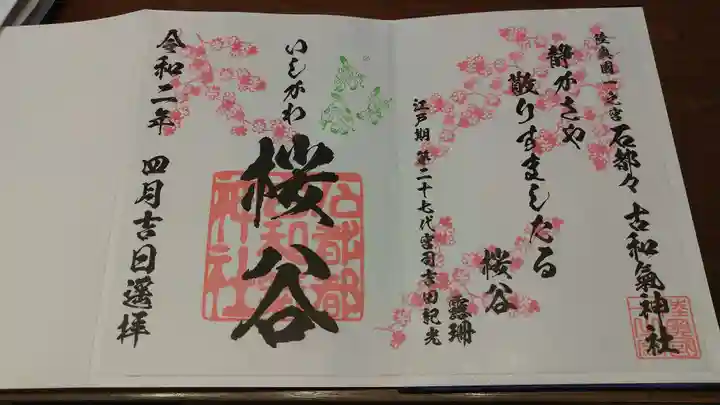 陸奥國一之宮 石都々古和氣神社
静かさや
散りすましたる
桜谷
江戸期第二十七代宮司吉田紀光
霞珊
いしがわ
桜谷
令和二年 四月吉日遥拝